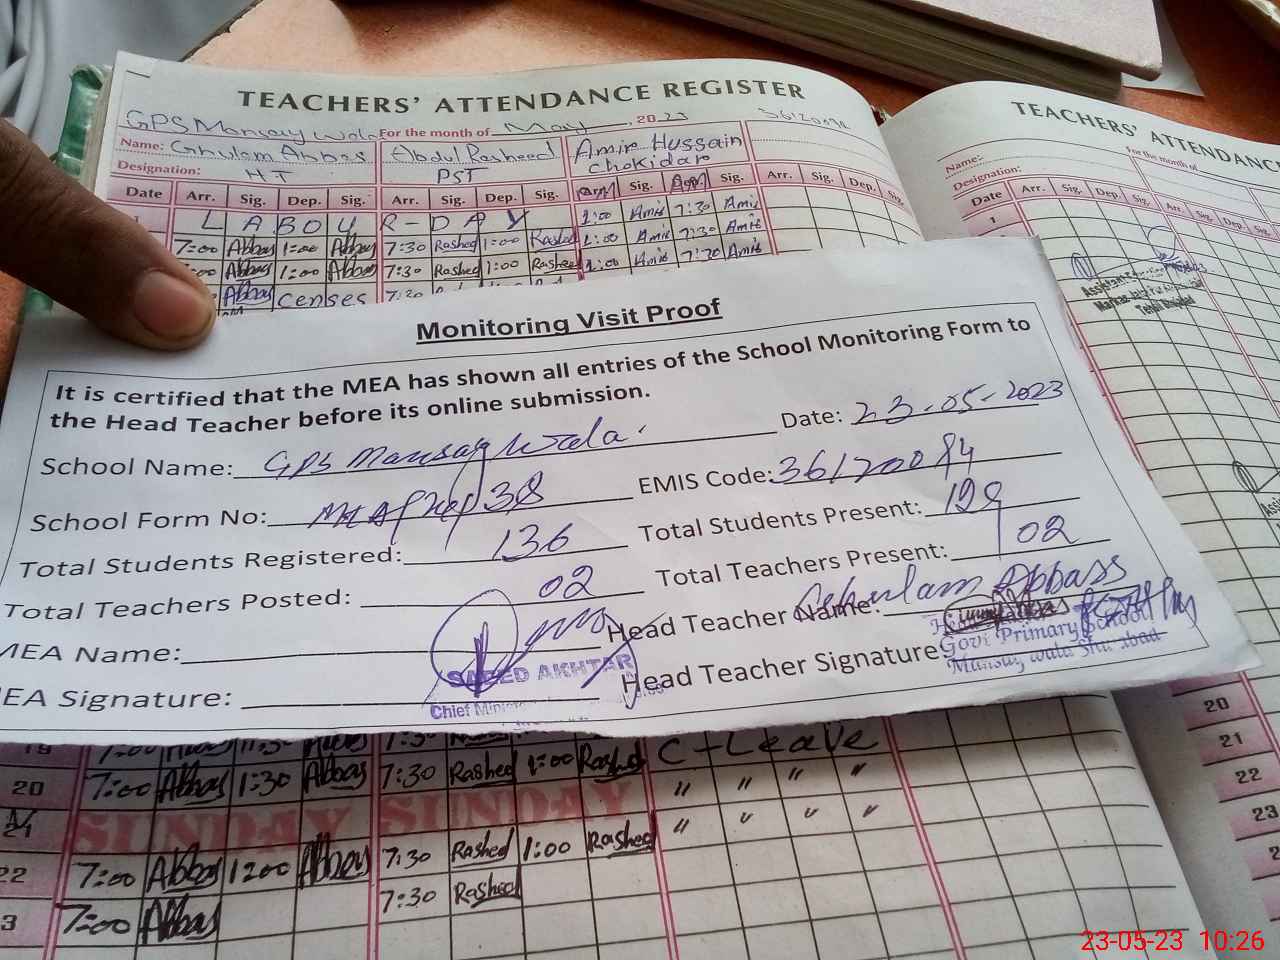 TEACHERS' ATTENDANCE REGISTER
GPS Mansay Wala For the month of May 2023
Name: Ghulam Abbas Abdul Rasheed Amir Hussain
Designation: HT PST Chokidar
Date Arr. Sig. Dep. Sig. Arr. Sig. Dep. Sig. Sig. Sig. Arr. Sig. Dep. Sig.
1 LABOUR-DAY 1:00 Amir 7:30 Amir
7:00 Abbas 1:00 Abbas 7:30 Rashed 1:00 Rashed 1:00 Amir 7:30 Amir
7:00 Abbas 1:00 Abbas 7:30 Rashed 1:00 Rashed 1:00 Amir 7:30 Amir
Abbas censes 7:30
TEACHERS' ATTENDANCE
Name: For the month of
Designation:
Date Arr. Sig. Dep. Sig. Arr. Sig. Dep. Sig.
1
Monitoring Visit Proof
It is certified that the MEA has shown all entries of the School Monitoring Form to
the Head Teacher before its online submission.
School Name: GPS Mansay Wala Date: 23-05-2023
School Form No: 38 EMIS Code: 36120084
Total Students Registered: 136 Total Students Present: 129
Total Teachers Posted: 02 Total Teachers Present: 02
MEA Name: Head Teacher Name: Ghulam Abbass
MEA Signature: Head Teacher Signature:
SAEED AKHTAR
Chief Minis
Govt Primary School
Mansay wala Shujabad
19 7:00 Abbas 11:30 Abbas 7:30 C-Leave
20 7:00 Abbas 1:30 Abbas 7:30 Rashed 1:00 Rashed " " " "
21 SUNDAY SUNDAY " " " "
22 7:00 Abbas 12:00 Abbas 7:30 Rashed 1:00 Rashed
3 7:00 Abbas 7:30 Rashed
20
21
22
23
23-05-23 10:26